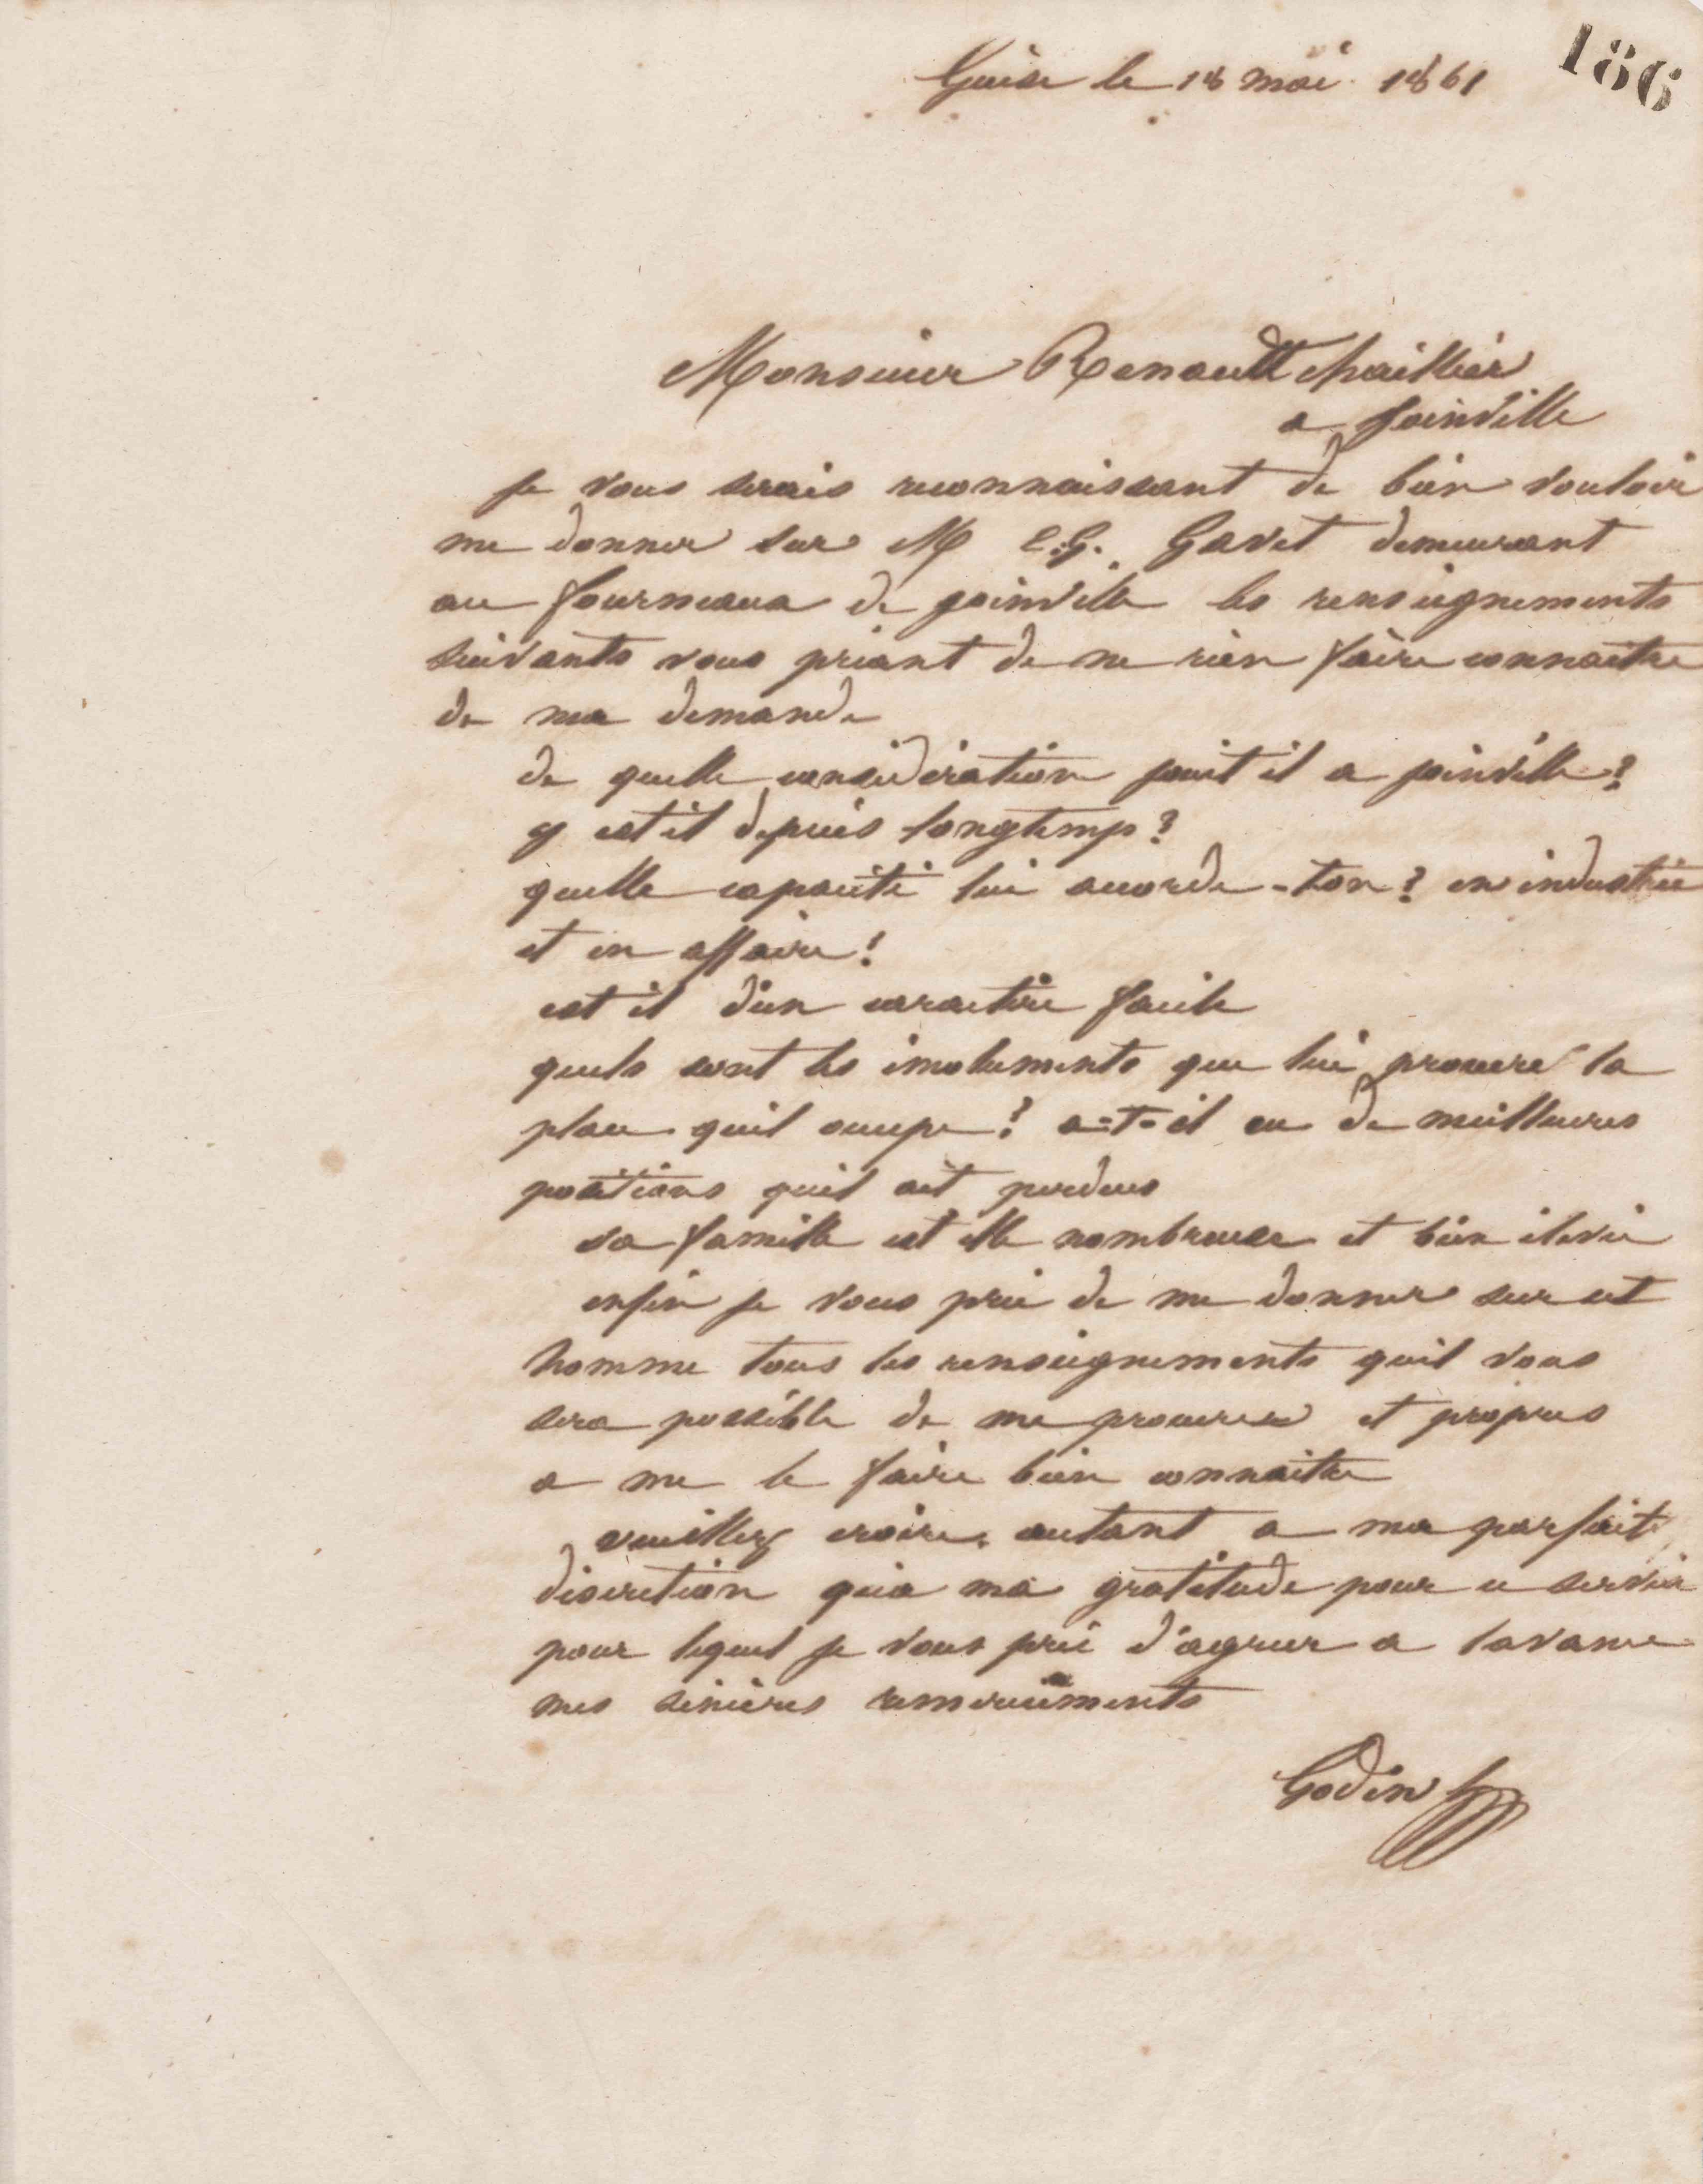 186
Guise le 18 mai 1861
Monsieur Renault Chaillier
a Joinville
Je vous serais reconnaissant de bien vouloir
me donner sur M E.G. Gavet demeurant
au fourneaux de Joinville les renseignements
suivants vous priant de ne rien faire connaitre
de ma demande
de quelle considération jouit il a joinville ?
y est il depuis longtemps ?
quelle capacité lui accorde-ton ? en industrie
et en affaire ?
est il d'un caractère facile
quels sont les émoluments que lui procure la
place quil occupe ? a-t-il eu de meilleures
positions quil ait perdues
sa famille est elle nombreuse et bien élevée
enfin je vous prie de me donner sur cet
homme tous les renseignements quil vous
sera possible de me procurer et propres
a me le faire bien connaitre
veuillez croire autant a ma parfaite
discretion qu'a ma gratitude pour ce service
pour lequel je vous prie d'agréer a lavance
mes sincères remerciements
Godin